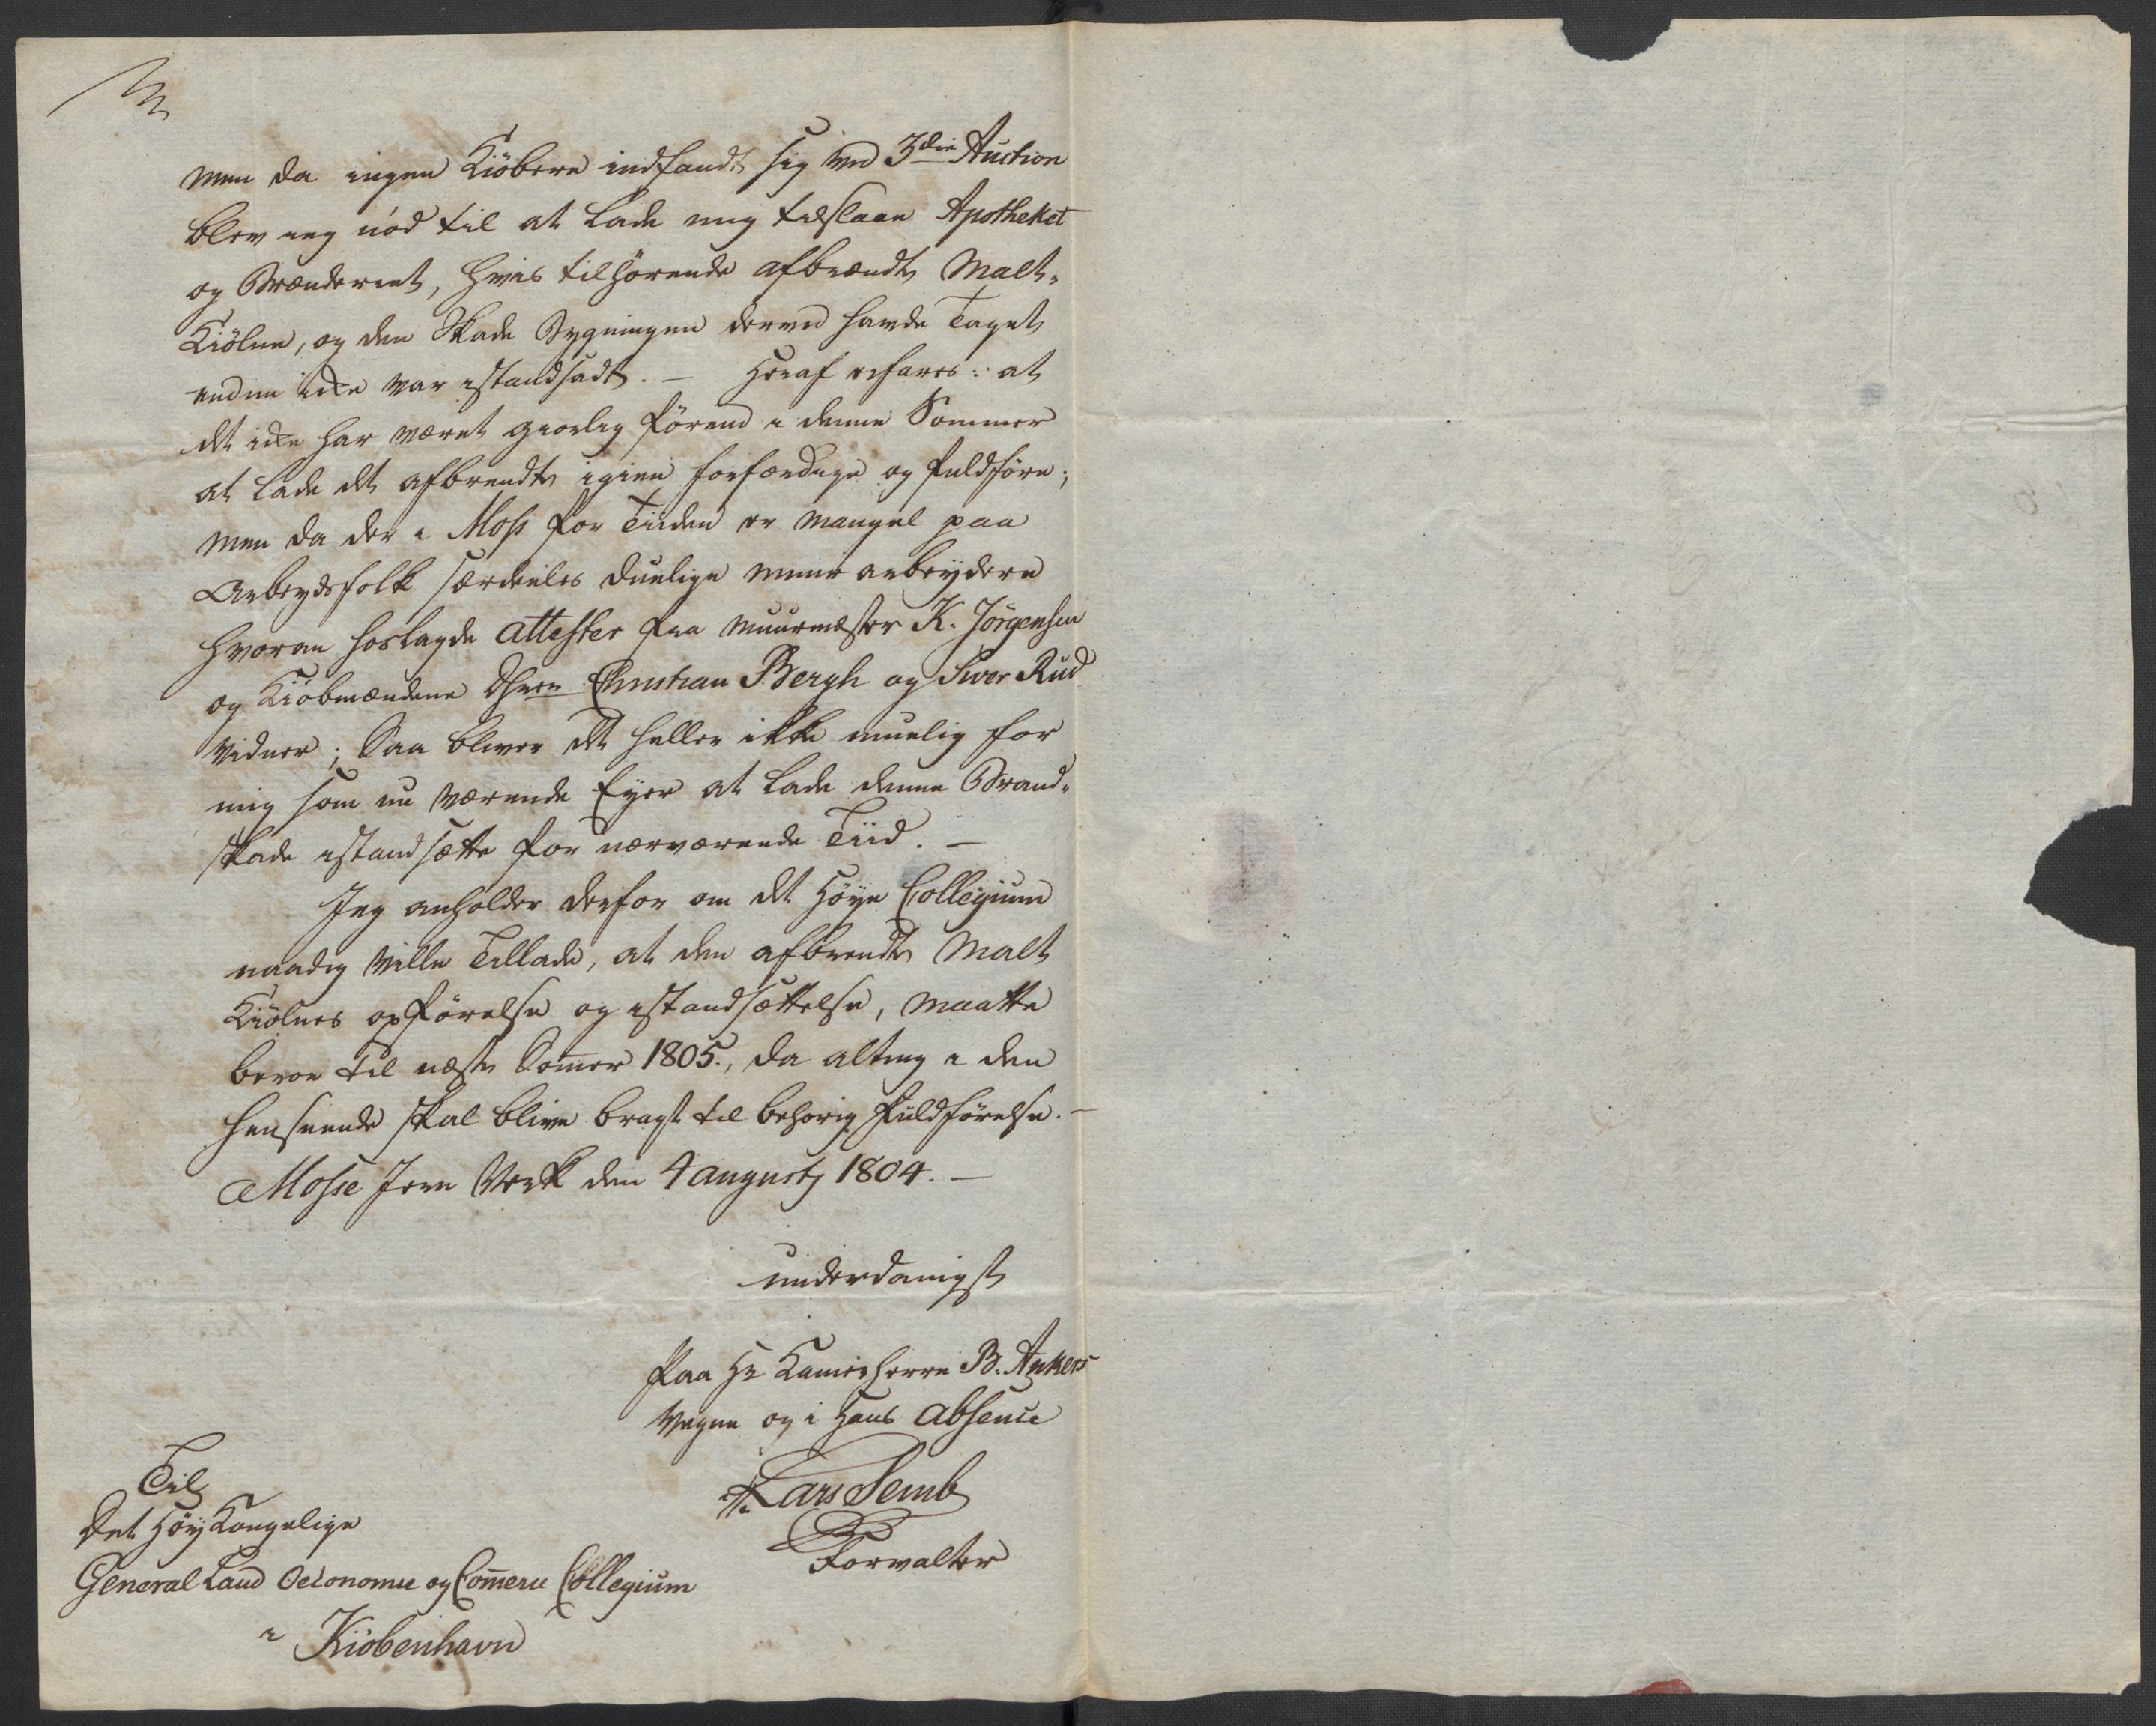 men da ingen Kiöbere indfandt sig ved 3die Auction
blev ieg nöd til at lade mig tilslaae Apotheket
og Brænderiet, hvis tilhörende afbrændte Malt-
Kiölne, og den Skade Bygningen derved havde Taget
endnu icke var istandsadt. — Heraf erfares: at
det icke har været giorlig förend i denne Sommer
at lade det afbrendte igien forfærdige og fuldföre;
men da der i Moss for Tiiden er Mangel paa
Arbeydsfolk særdeeles duelige Muur arbeydere
hvorom hoslagde Attester fra Muurmester K. Jörgensen
og Kiöbmændene Dhrr Christian Bergh og Iver Rud
vidner; Saa bliver det heller ikke muelig for
mig som nu værende Eyer at lade denne Brand-
skade istandsætte for nærværende Tiid. —
Jeg anholder derfor om det Höye Collegium
naadig ville Tillade, at den afbrendte Malt
Kiölnes opförelse og istandsættelse, maatte
beroe til næste Som̅er 1805., da alting i den
henseende skal blive bragt til behörig Fuldförelse. —
Mosse Jern Værk den 4 August 1804. —
underdanigst
Paa Hr Kamerherre B. Ankers
Vegne og i Hans Absence
Lars Semb
Forvalter
Til
Det Höy Kongelige
General Land Oeconomie og Com̅erce Collegium
i Kiöbenhavn